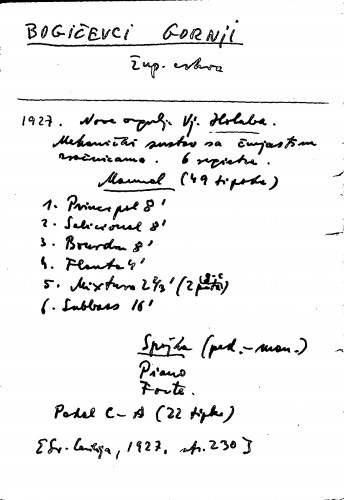 BOGIČEVCI GORNJI
Žup. crkva
1927. Nove orgulje Vj. Holuba.
Mehanički sustav sa čunjastim
zračnicama. 6 registra.
Manual (49 tipaka)
1. Principal 8'
2. Salicional 8'
3. Bourdon 8'
4. Flauta 4'
5. Mixtura 2 2/3' (2
6. Subbass 16'
Spojka (ped. - man.)
Piano
Forte.
Pedal C - A (22 tipke)
[Sv. Cecilija, 1927. str. 230]